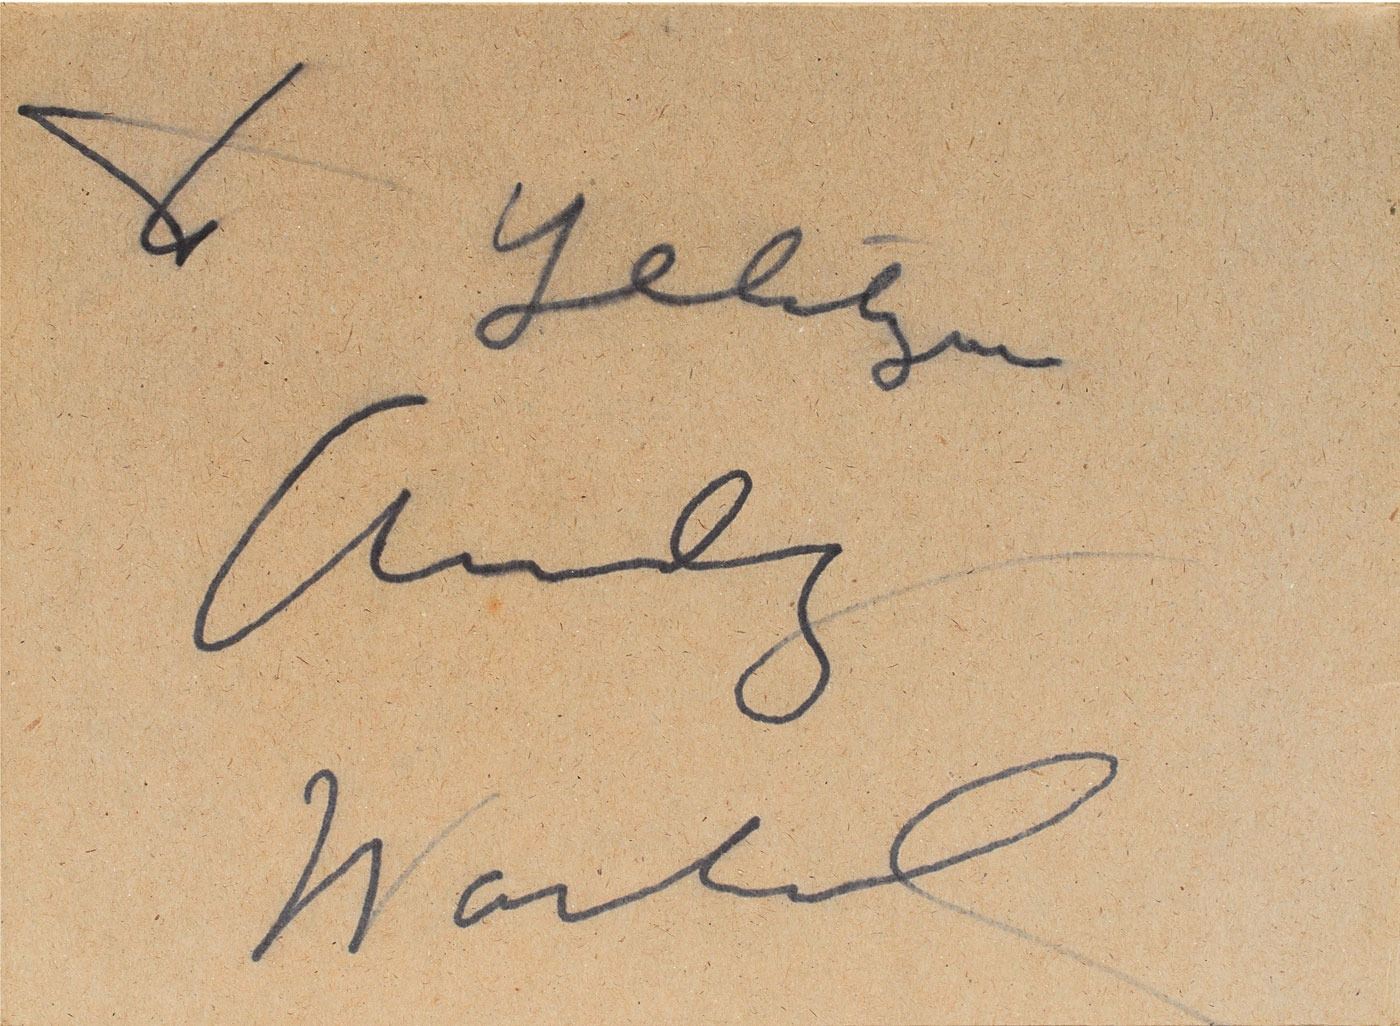 To Yelitza
Andy
Warhol